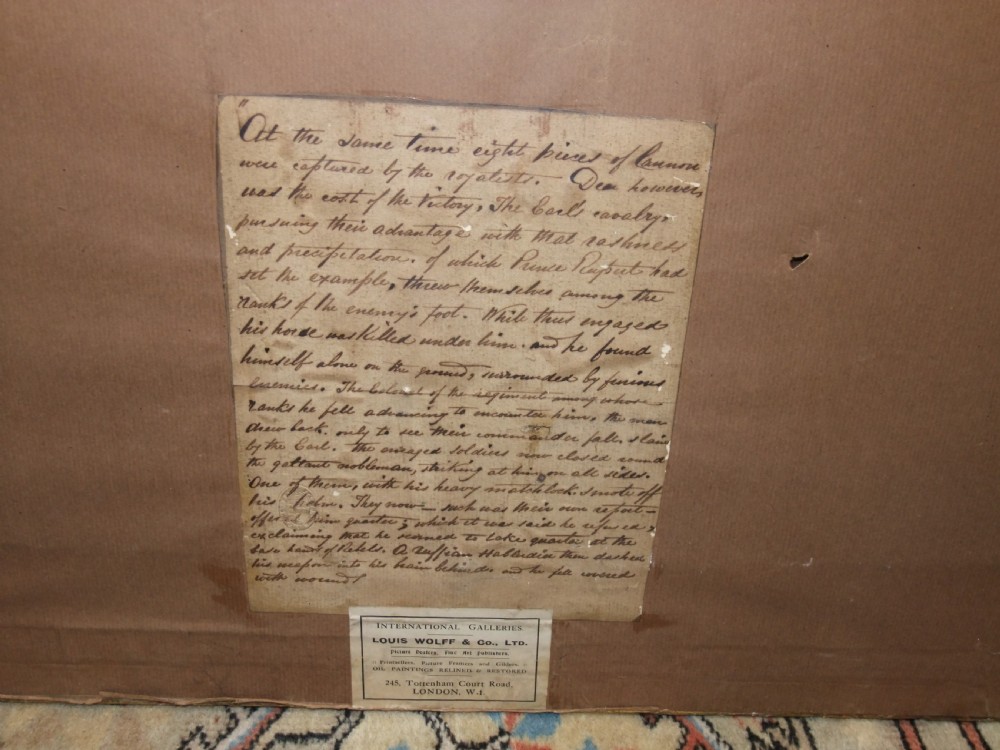 "At the same time eight pieces of Cannon
were captured by the royalists. Dear however,
was the cost of the victory, The Earl's cavalry,
pursuing their advantage with that rashness
and precipitation. of which Prince Rupert had
set the example, threw themselves among the
ranks of the enemy's foot. While thus engaged
his horse was killed under him. and he found
himself alone on the ground, surrounded by furious
enemies. The Colonel of the regiment among whose
ranks he fell advancing to encounter him, the men
drew back. only to see their commander fall, slain
by the Earl. The enraged soldiers now closed round
the gallant nobleman, striking at him on all sides.
One of them, with his heavy matchlock smote off
his helm. They now — such was their own report —
offered him quarter; which it was said he refused,
exclaiming that he scorned to take quarter at the
base hands of Rebels. A ruffian Halberdier then dashed
his weapon into his brain behind. and he fell covered
with wounds!
INTERNATIONAL GALLERIES
LOUIS WOLFF & Co., LTD.
Picture Dealers, Fine Art Publishers.
Printsellers, Picture Framers and Gilders.
OIL PAINTINGS RELINED & RESTORED
245, Tottenham Court Road,
LONDON, W.1.